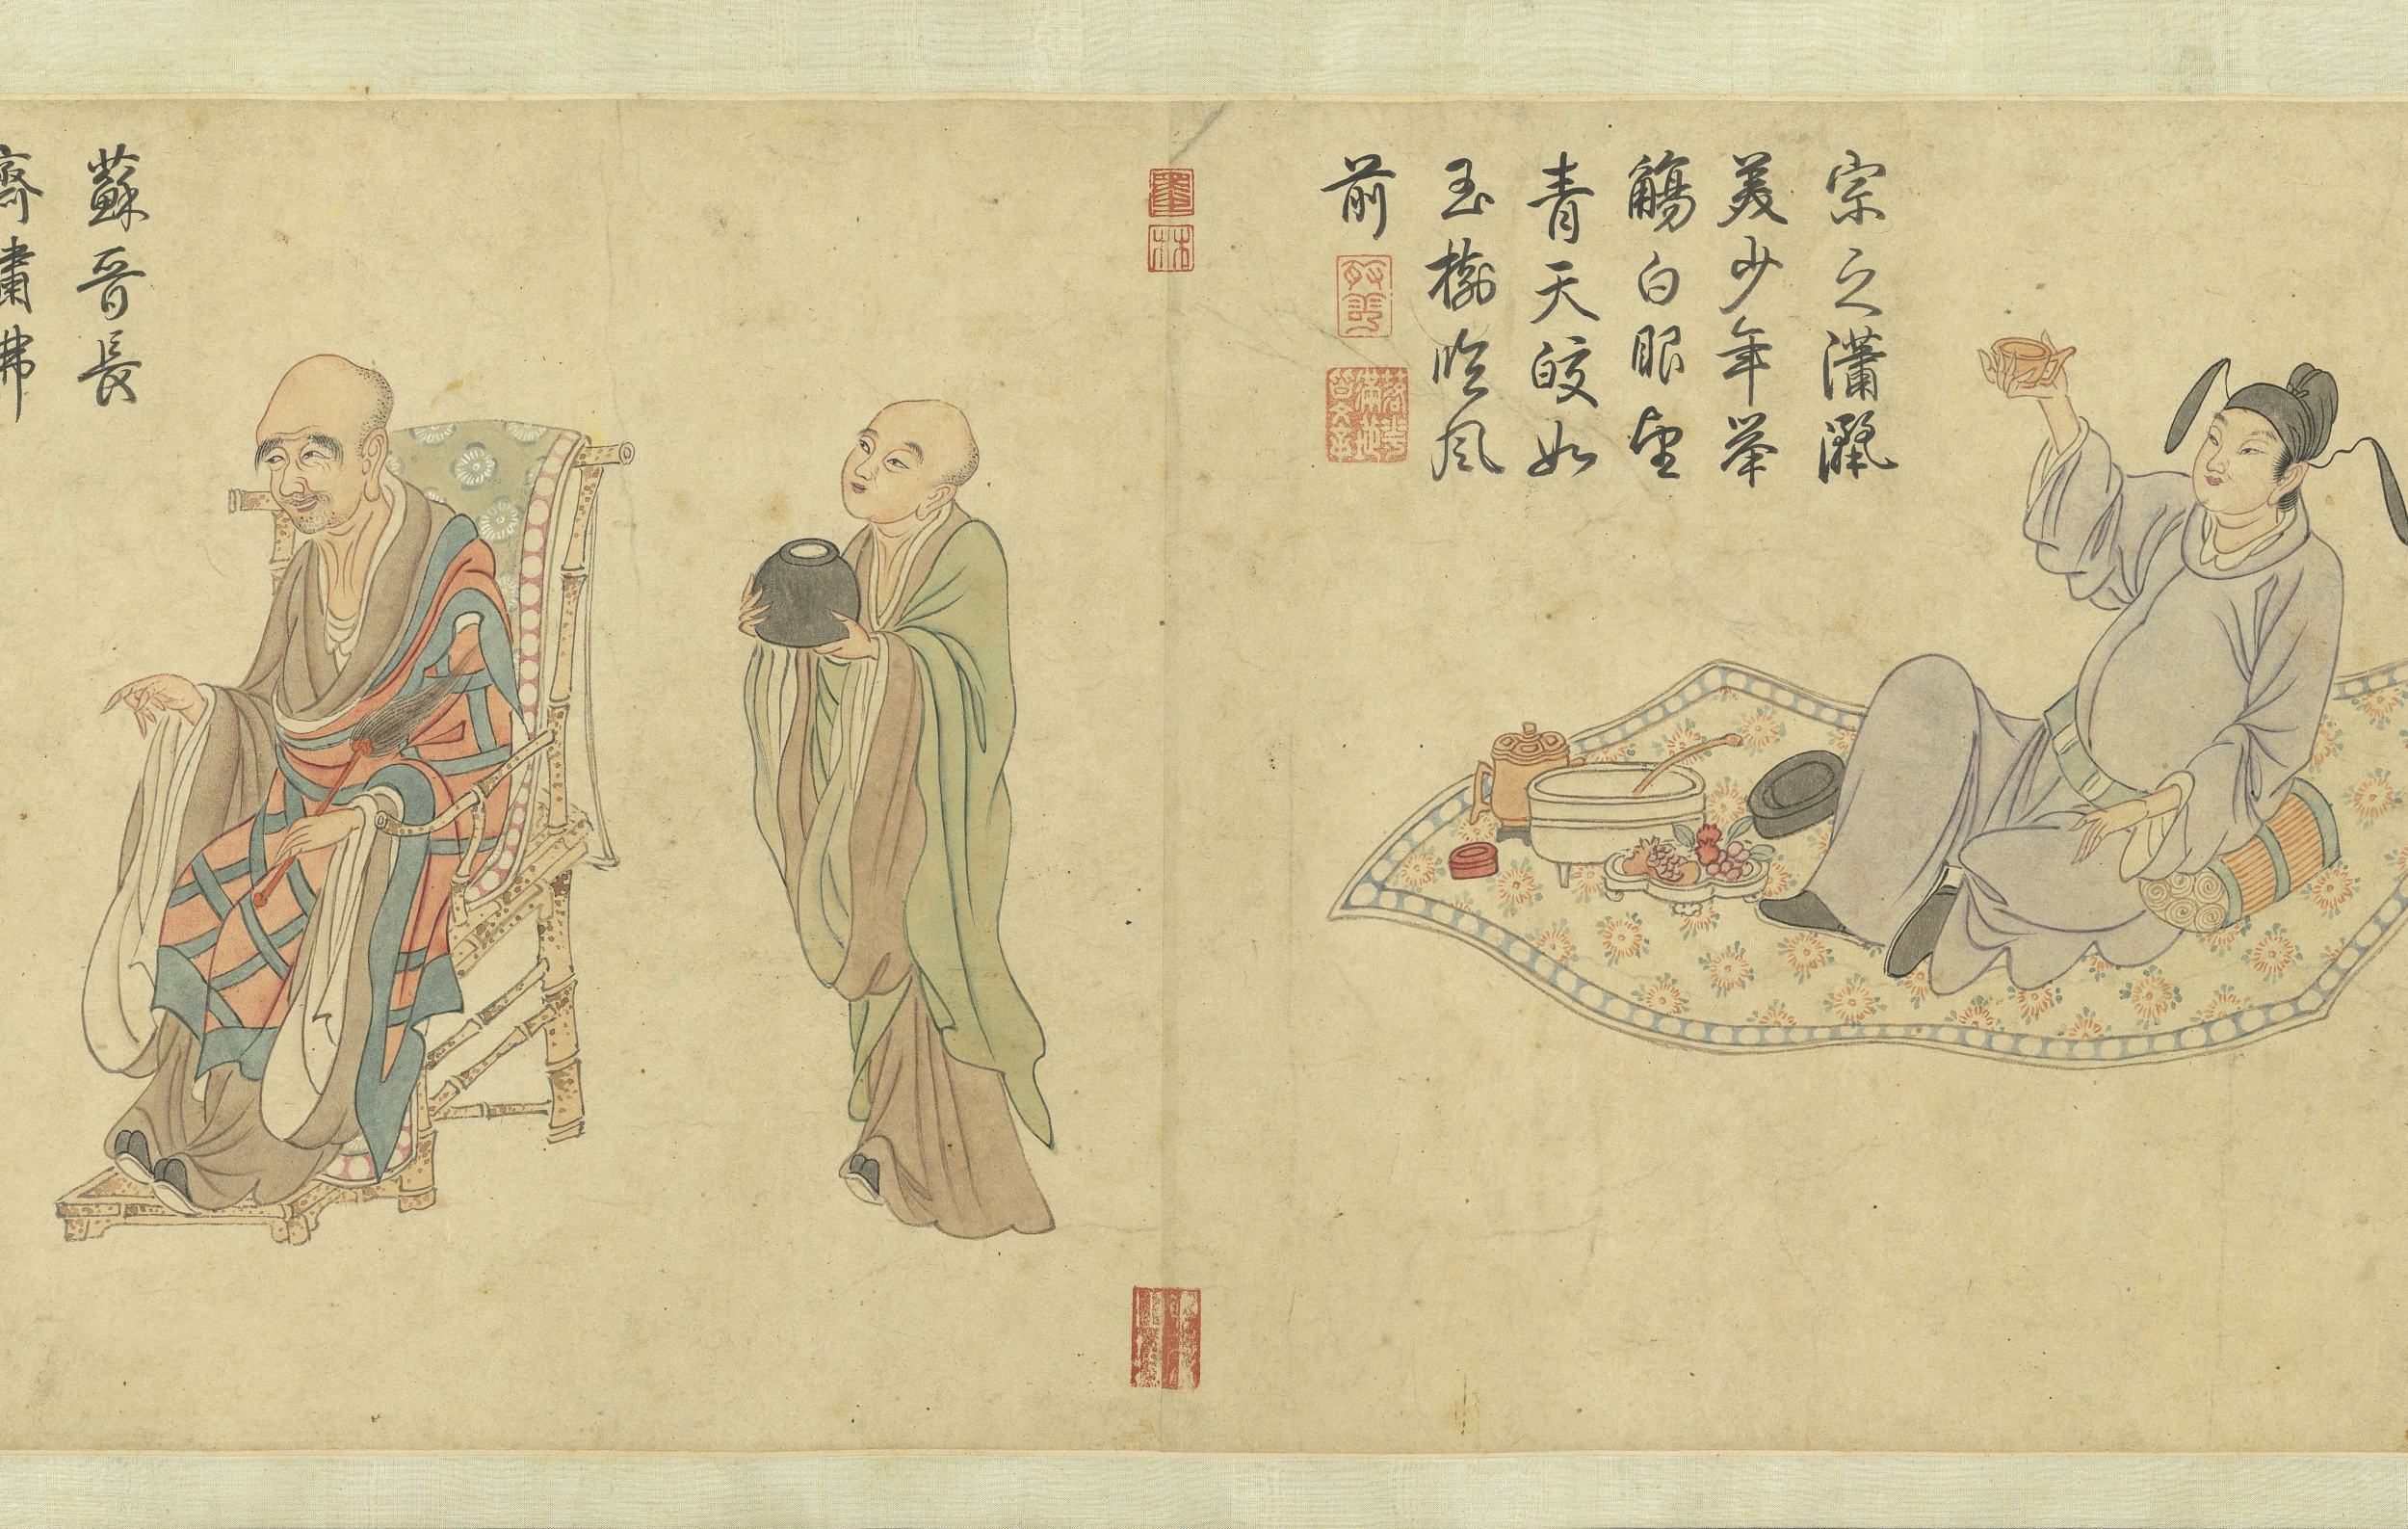 宗之瀟灑
美少年舉
觴白眼望
青天皎如
玉樹臨風
前
蘇晉長
齋繡佛